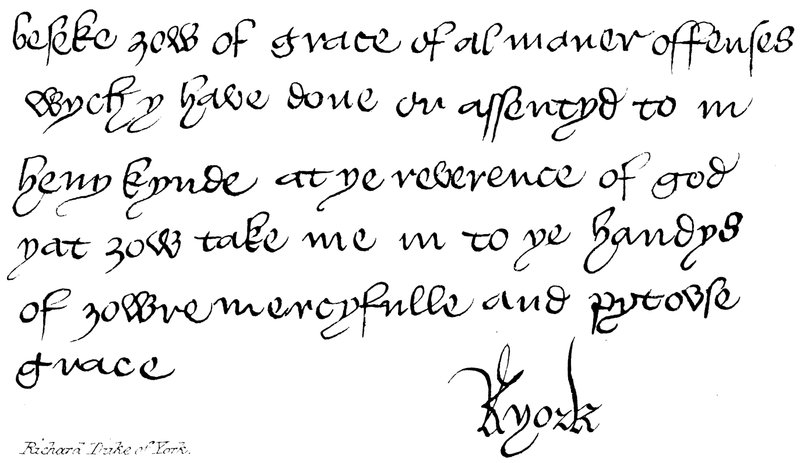 beseke ȝow of grace of al maner offenses
wych y have done or assentyd to in
heny kynde at ye reverence of god
yat ȝow take me in to ye handys
of ȝowre mercyfulle and pytovse
grace
R york
Richard Duke of York.